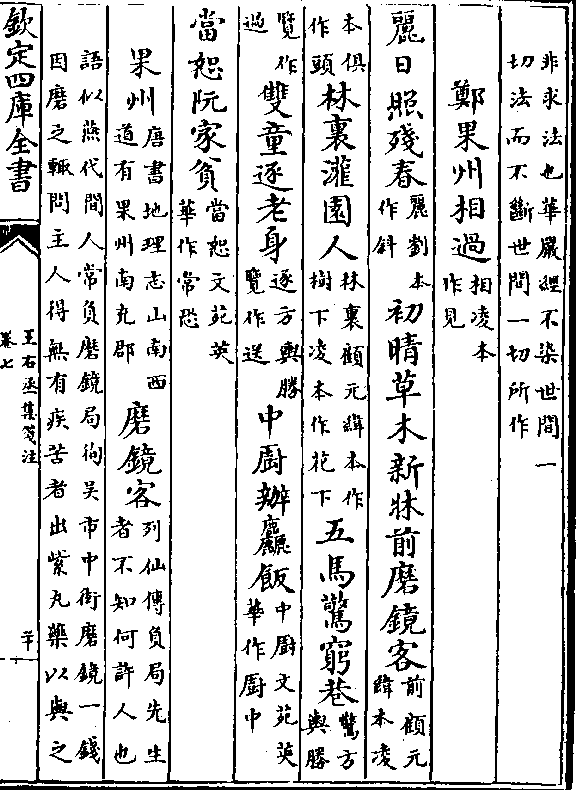 非求法也華嚴經不染世間一
切法而不斷世間一切所作
鄭果州相過相凌本作見
麗日照殘春麗劉本作斜初晴草木新牀前磨鏡客前顧元緯本凌
本俱作頭林裏灌園人林裏顧元緯本作樹下凌本作花下五馬驚窮巷驚方輿勝
覽作過雙童逐老身逐方輿勝覽作送中厨辦麤飯中厨文苑英華作厨中
當恕阮家貧當恕文苑英華作常恐
果州唐書地理志山南西道有果州南充郡磨鏡客列仙傳負局先生者不知何許人也
語似燕代間人常負磨鏡局徇吳市中衒磨鏡一錢
因磨之輒問主人得無有疾苦者出紫丸藥以與之
欽定四庫全書
王右丞集箋注
卷七